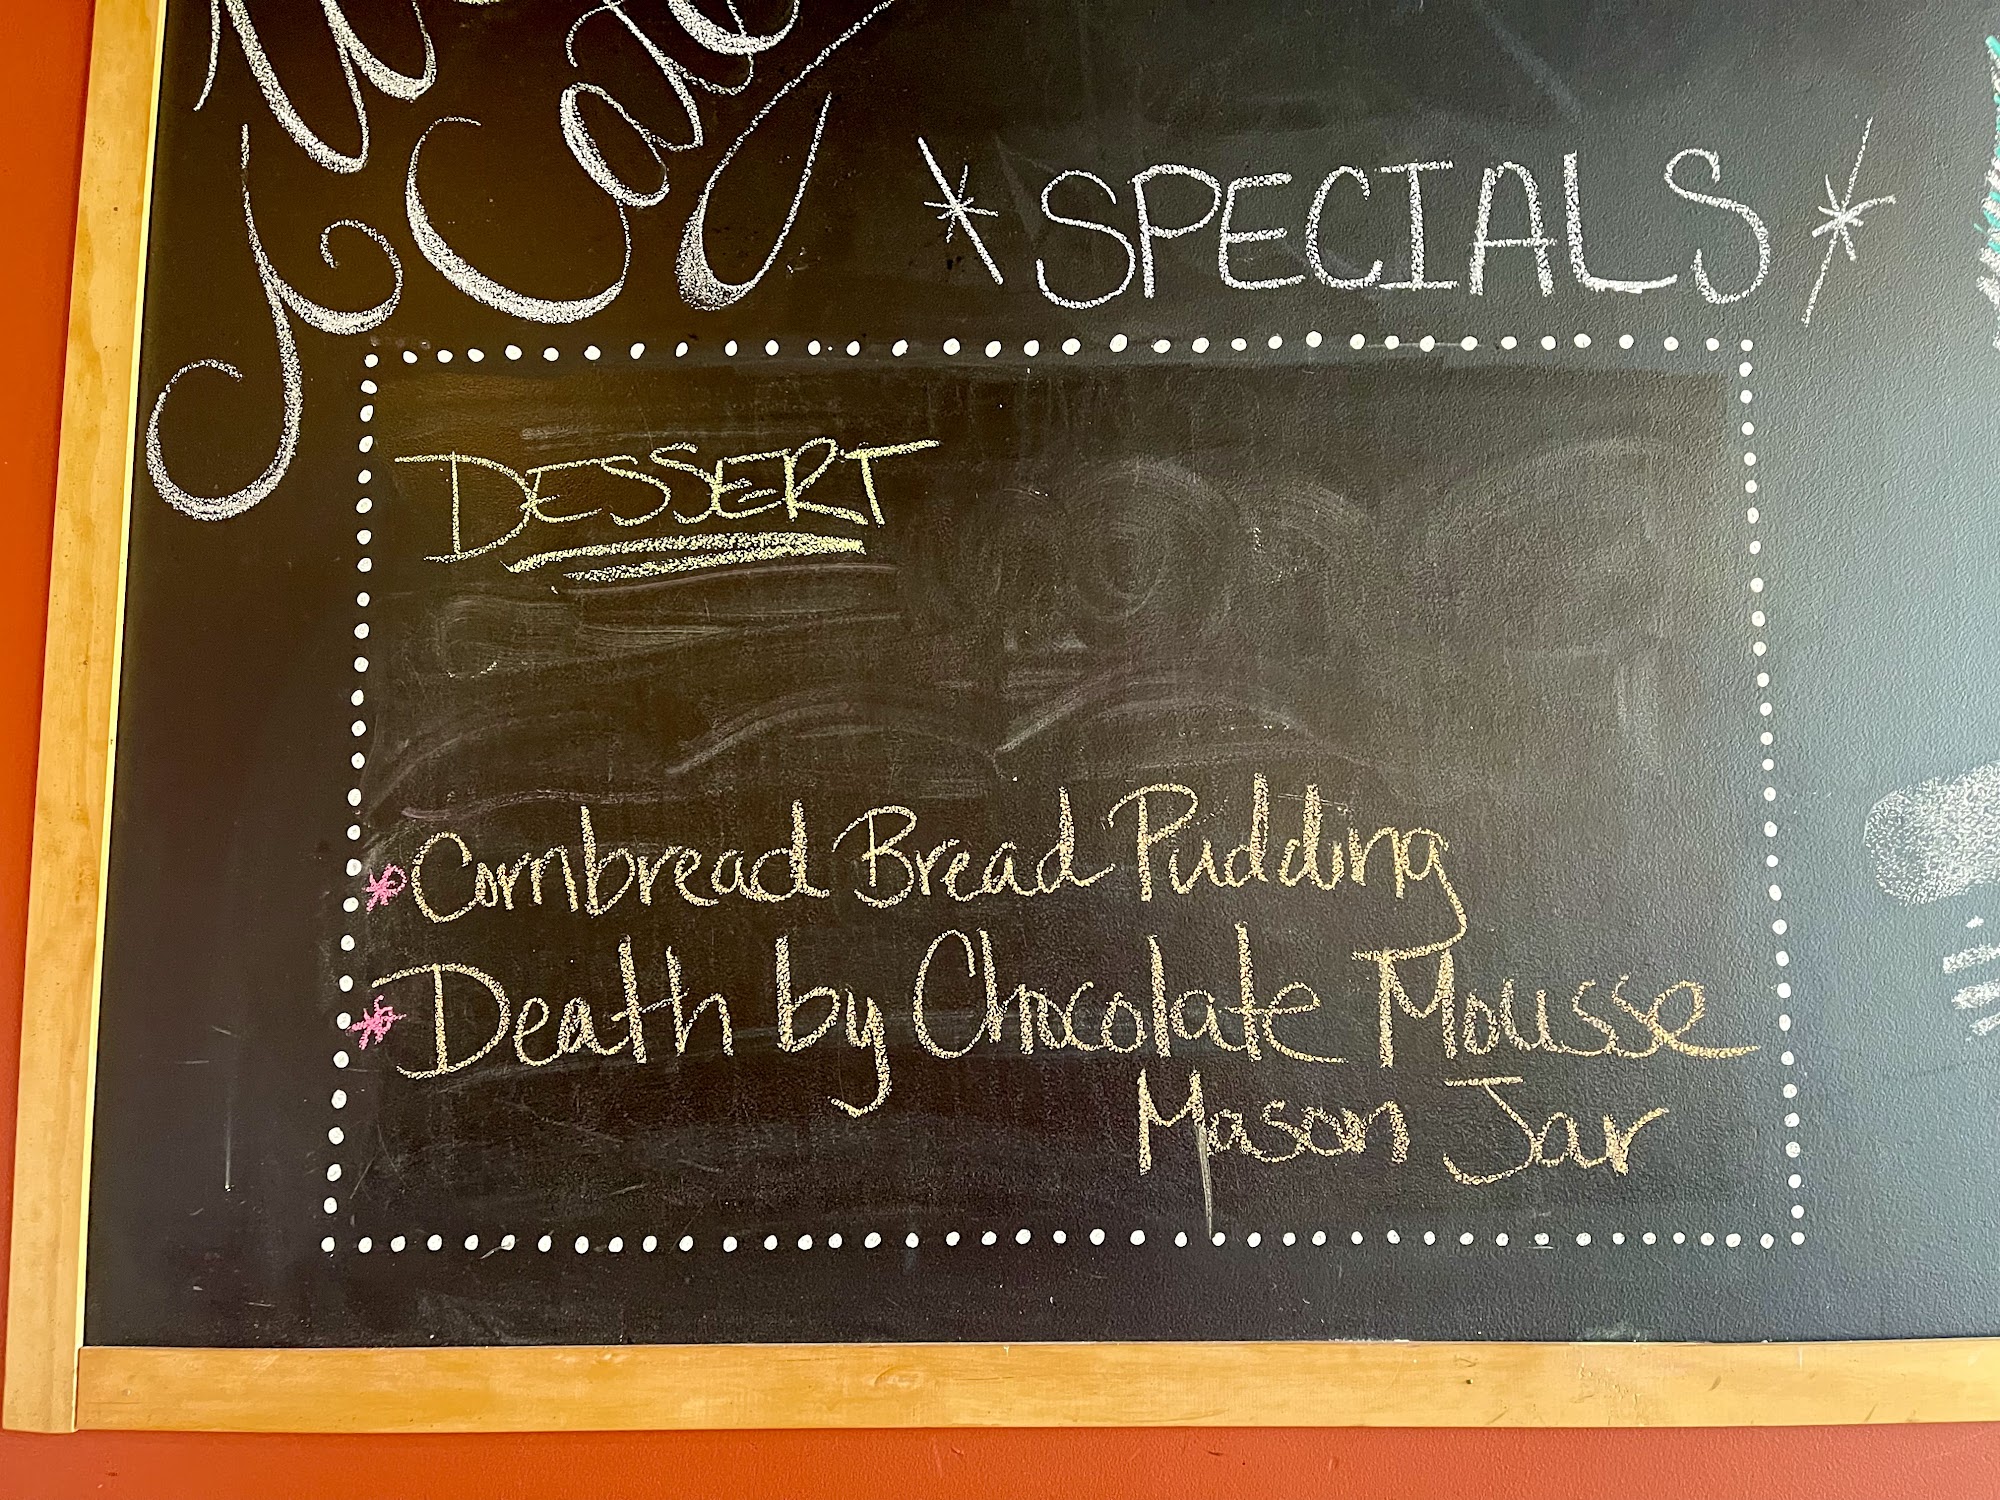 *SPECIALS*
DESSERT
* Cornbread Bread Pudding
* Death by Chocolate Mousse
Mason Jar